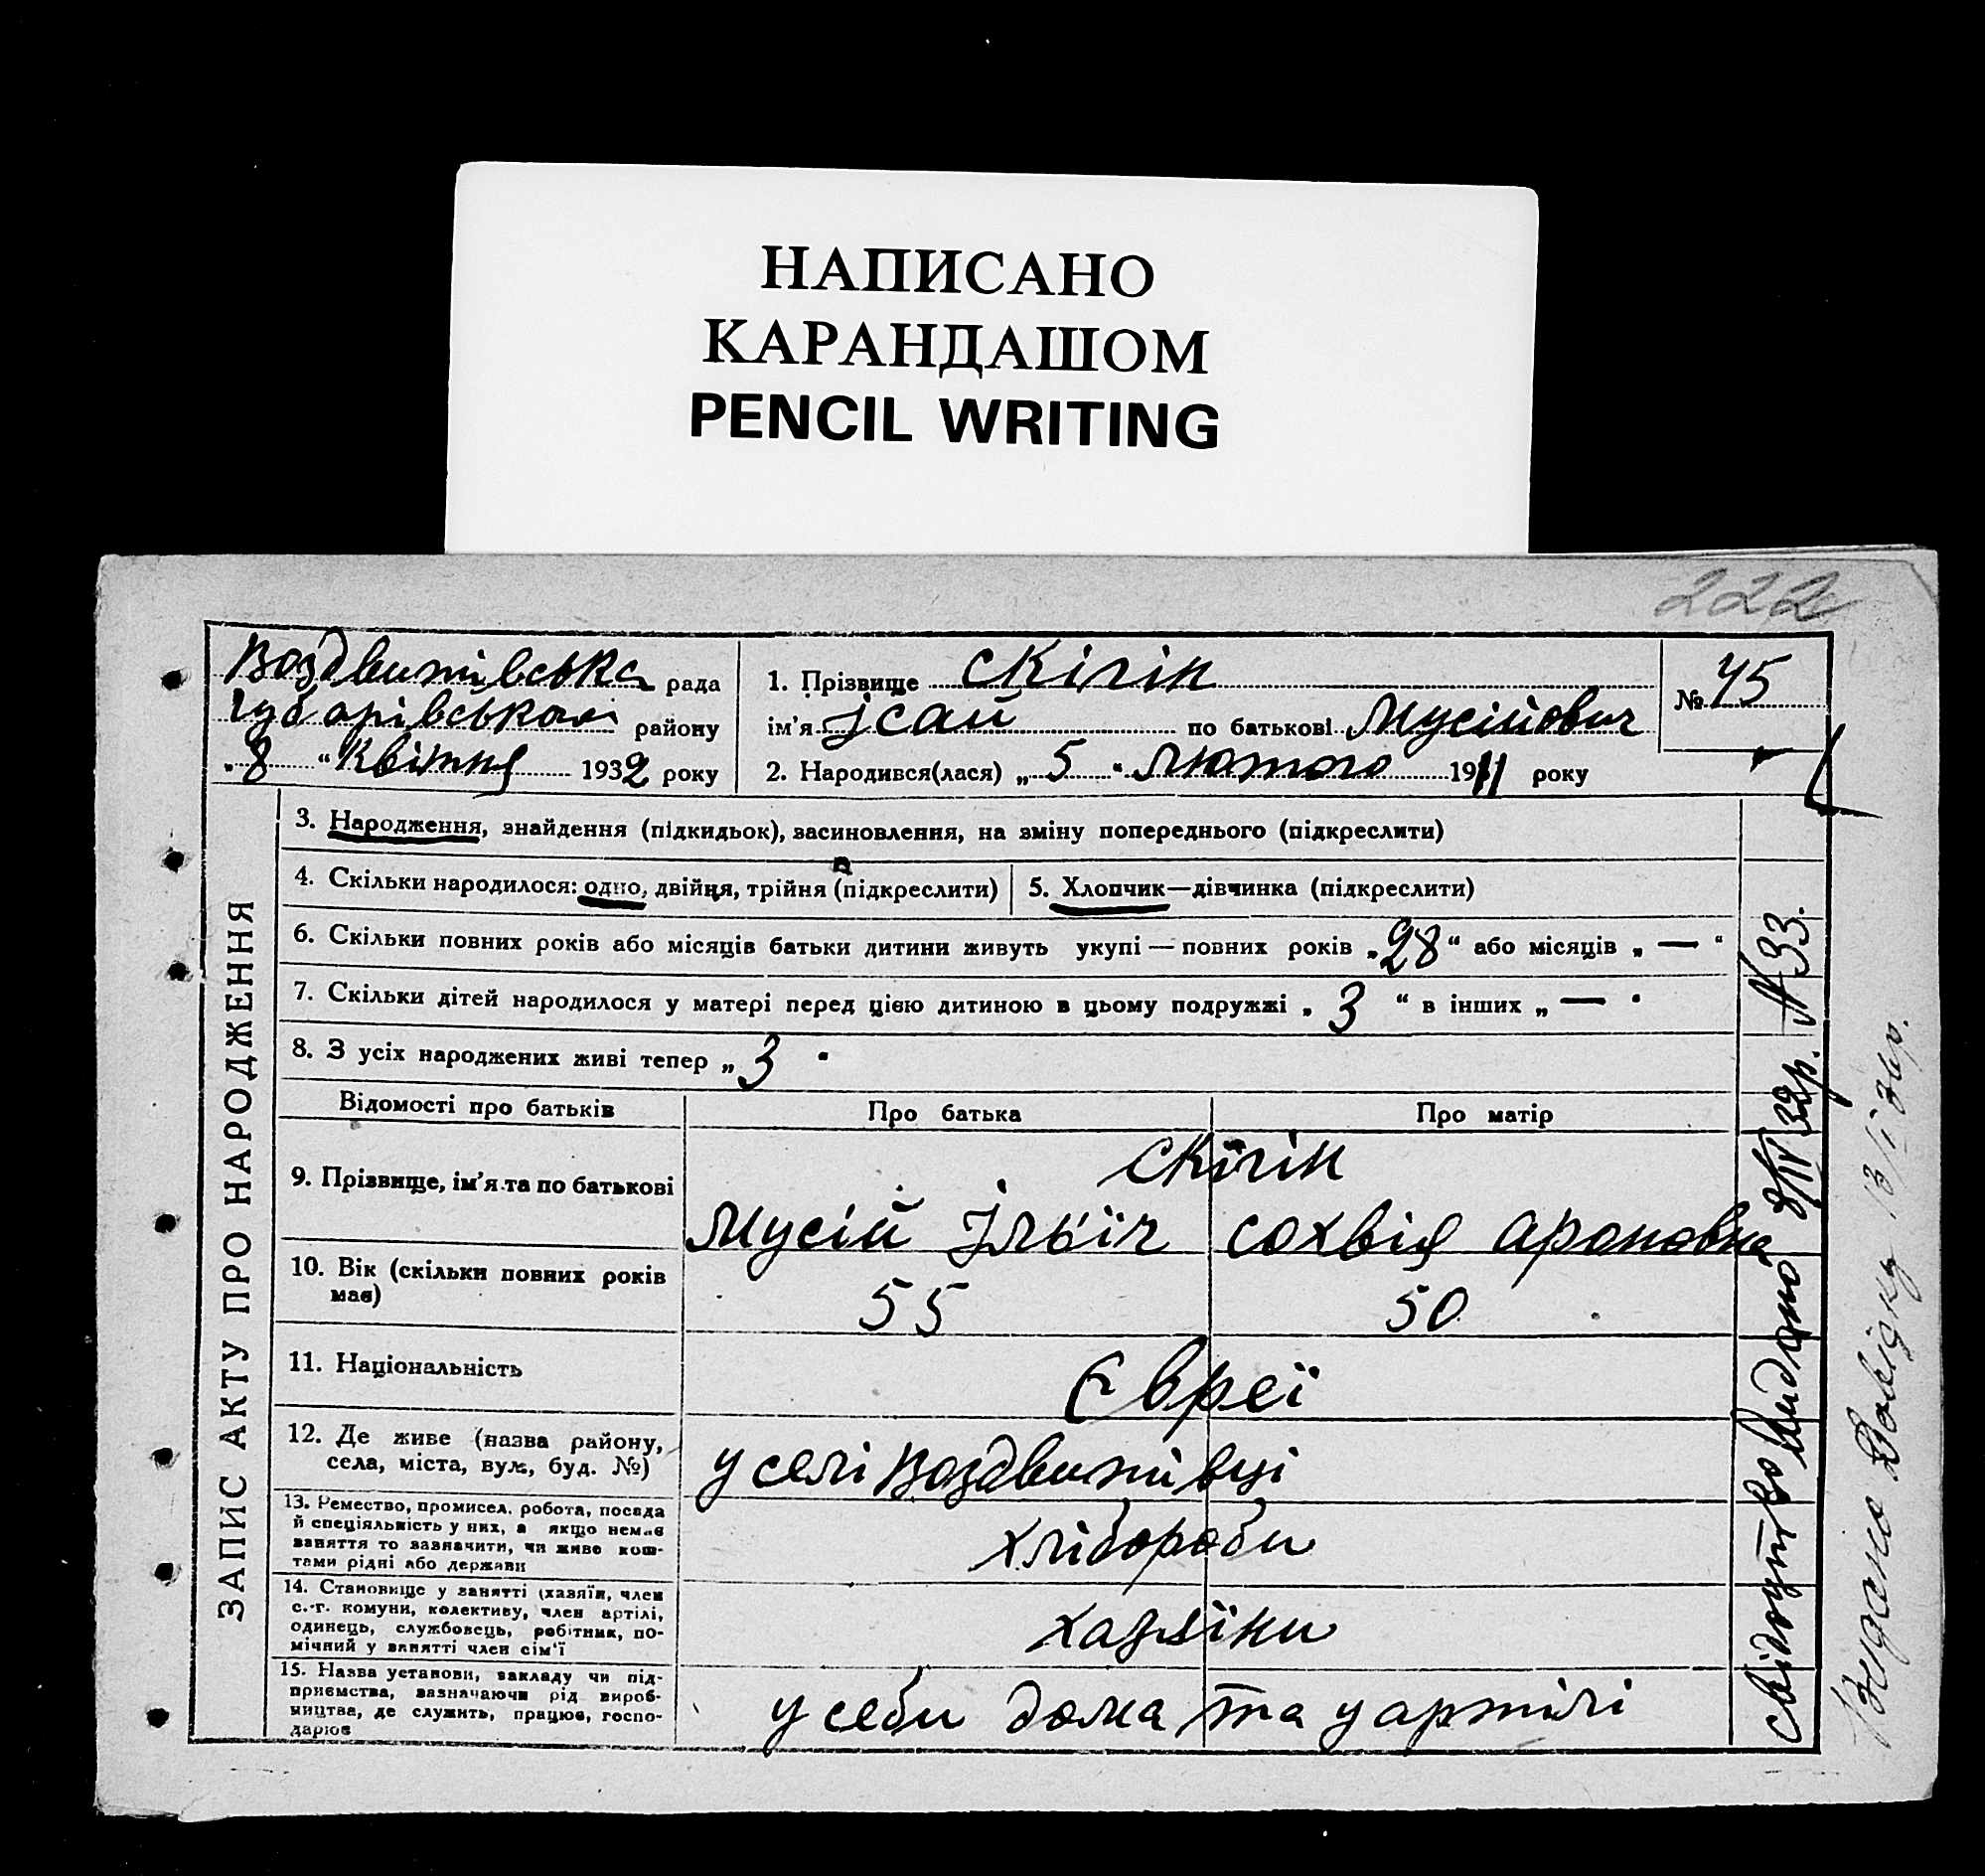 НАПИСАНО
КАРАНДАШОМ
PENCIL WRITING
222
Воздвижівська рада
Чубарівського району
„8“ Квітня 1932 року
1. Прізвище Скігін
ім'я Ісай по батькові Мусійович
2. Народився(лася) „5“ лютого 1911 року
№ 45
ЗАПИС АКТУ ПРО НАРОДЖЕННЯ
3. Народження, знайдення (підкидьок), засиновлення, на зміну попереднього (підкреслити)
4. Скільки народилося: одно, двійня, трійня (підкреслити)
5. Хлопчик—дівчинка (підкреслити)
6. Скільки повних років або місяців батьки дитини живуть укупі — повних років „28“ або місяців „—“
7. Скільки дітей народилося у матері перед цією дитиною в цьому подружжі „3“ в інших „—“
8. З усіх народжених живі тепер „3“
Відомості про батьків Про батька Про матір
9. Прізвище, ім'я та по батькові
Скігін
Мусій Ільіч Сохвія Ароновна
10. Вік (скільки повних років
має)
55 50
11. Національність
Євреї
12. Де живе (назва району,
села, міста, вул., буд. №)
у селі Воздвижівці
13. Ремество, промисел, робота, посада
й спеціяльність у них, а якщо немає
заняття то зазначити, чи живе кош-
тами рідні або держави
хлібороби
14. Становище у занятті (хазяїн, член
с.-г. комуни, колективу, член артілі,
одинець, службовець, робітник, по-
мічний у занятті член сім'ї
хазяїни
15. Назва установи, закладу чи під-
приємства, зазначаючи рід вироб-
ництва, де служить, працює, госпо-
дарює
у себи дома та у артілі
свідоцтво видано 8/IV 32р. № 33.
Видано Довідку 13/I